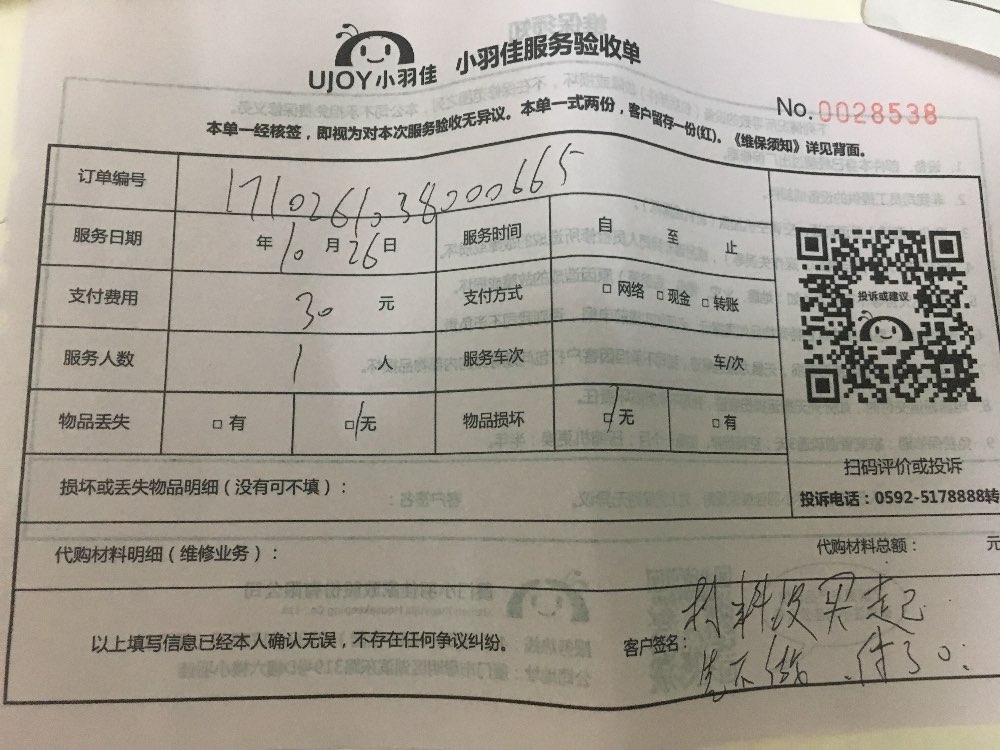 UJOY小羽佳 小羽佳服务验收单
No. 0028538
本单一经核签，即视为对本次服务验收无异议。本单一式两份，客户留存一份(红)。《维保须知》详见背面。
订单编号 1710261038000665
服务日期 年 10 月 26 日 服务时间 自 至 止
支付费用 30 元 支付方式 □ 网络 □ 现金 □ 转账
服务人数 1 人 服务车次 车/次
物品丢失 □ 有 □ 无 物品损坏 □ 无 □ 有
投诉或建议
扫码评价或投诉
投诉电话：0592-5178888转
损坏或丢失物品明细（没有可不填）：
代购材料明细（维修业务）： 代购材料总额： 元
以上填写信息已经本人确认无误，不存在任何争议纠纷。 客户签名：
材料没买起
先不做